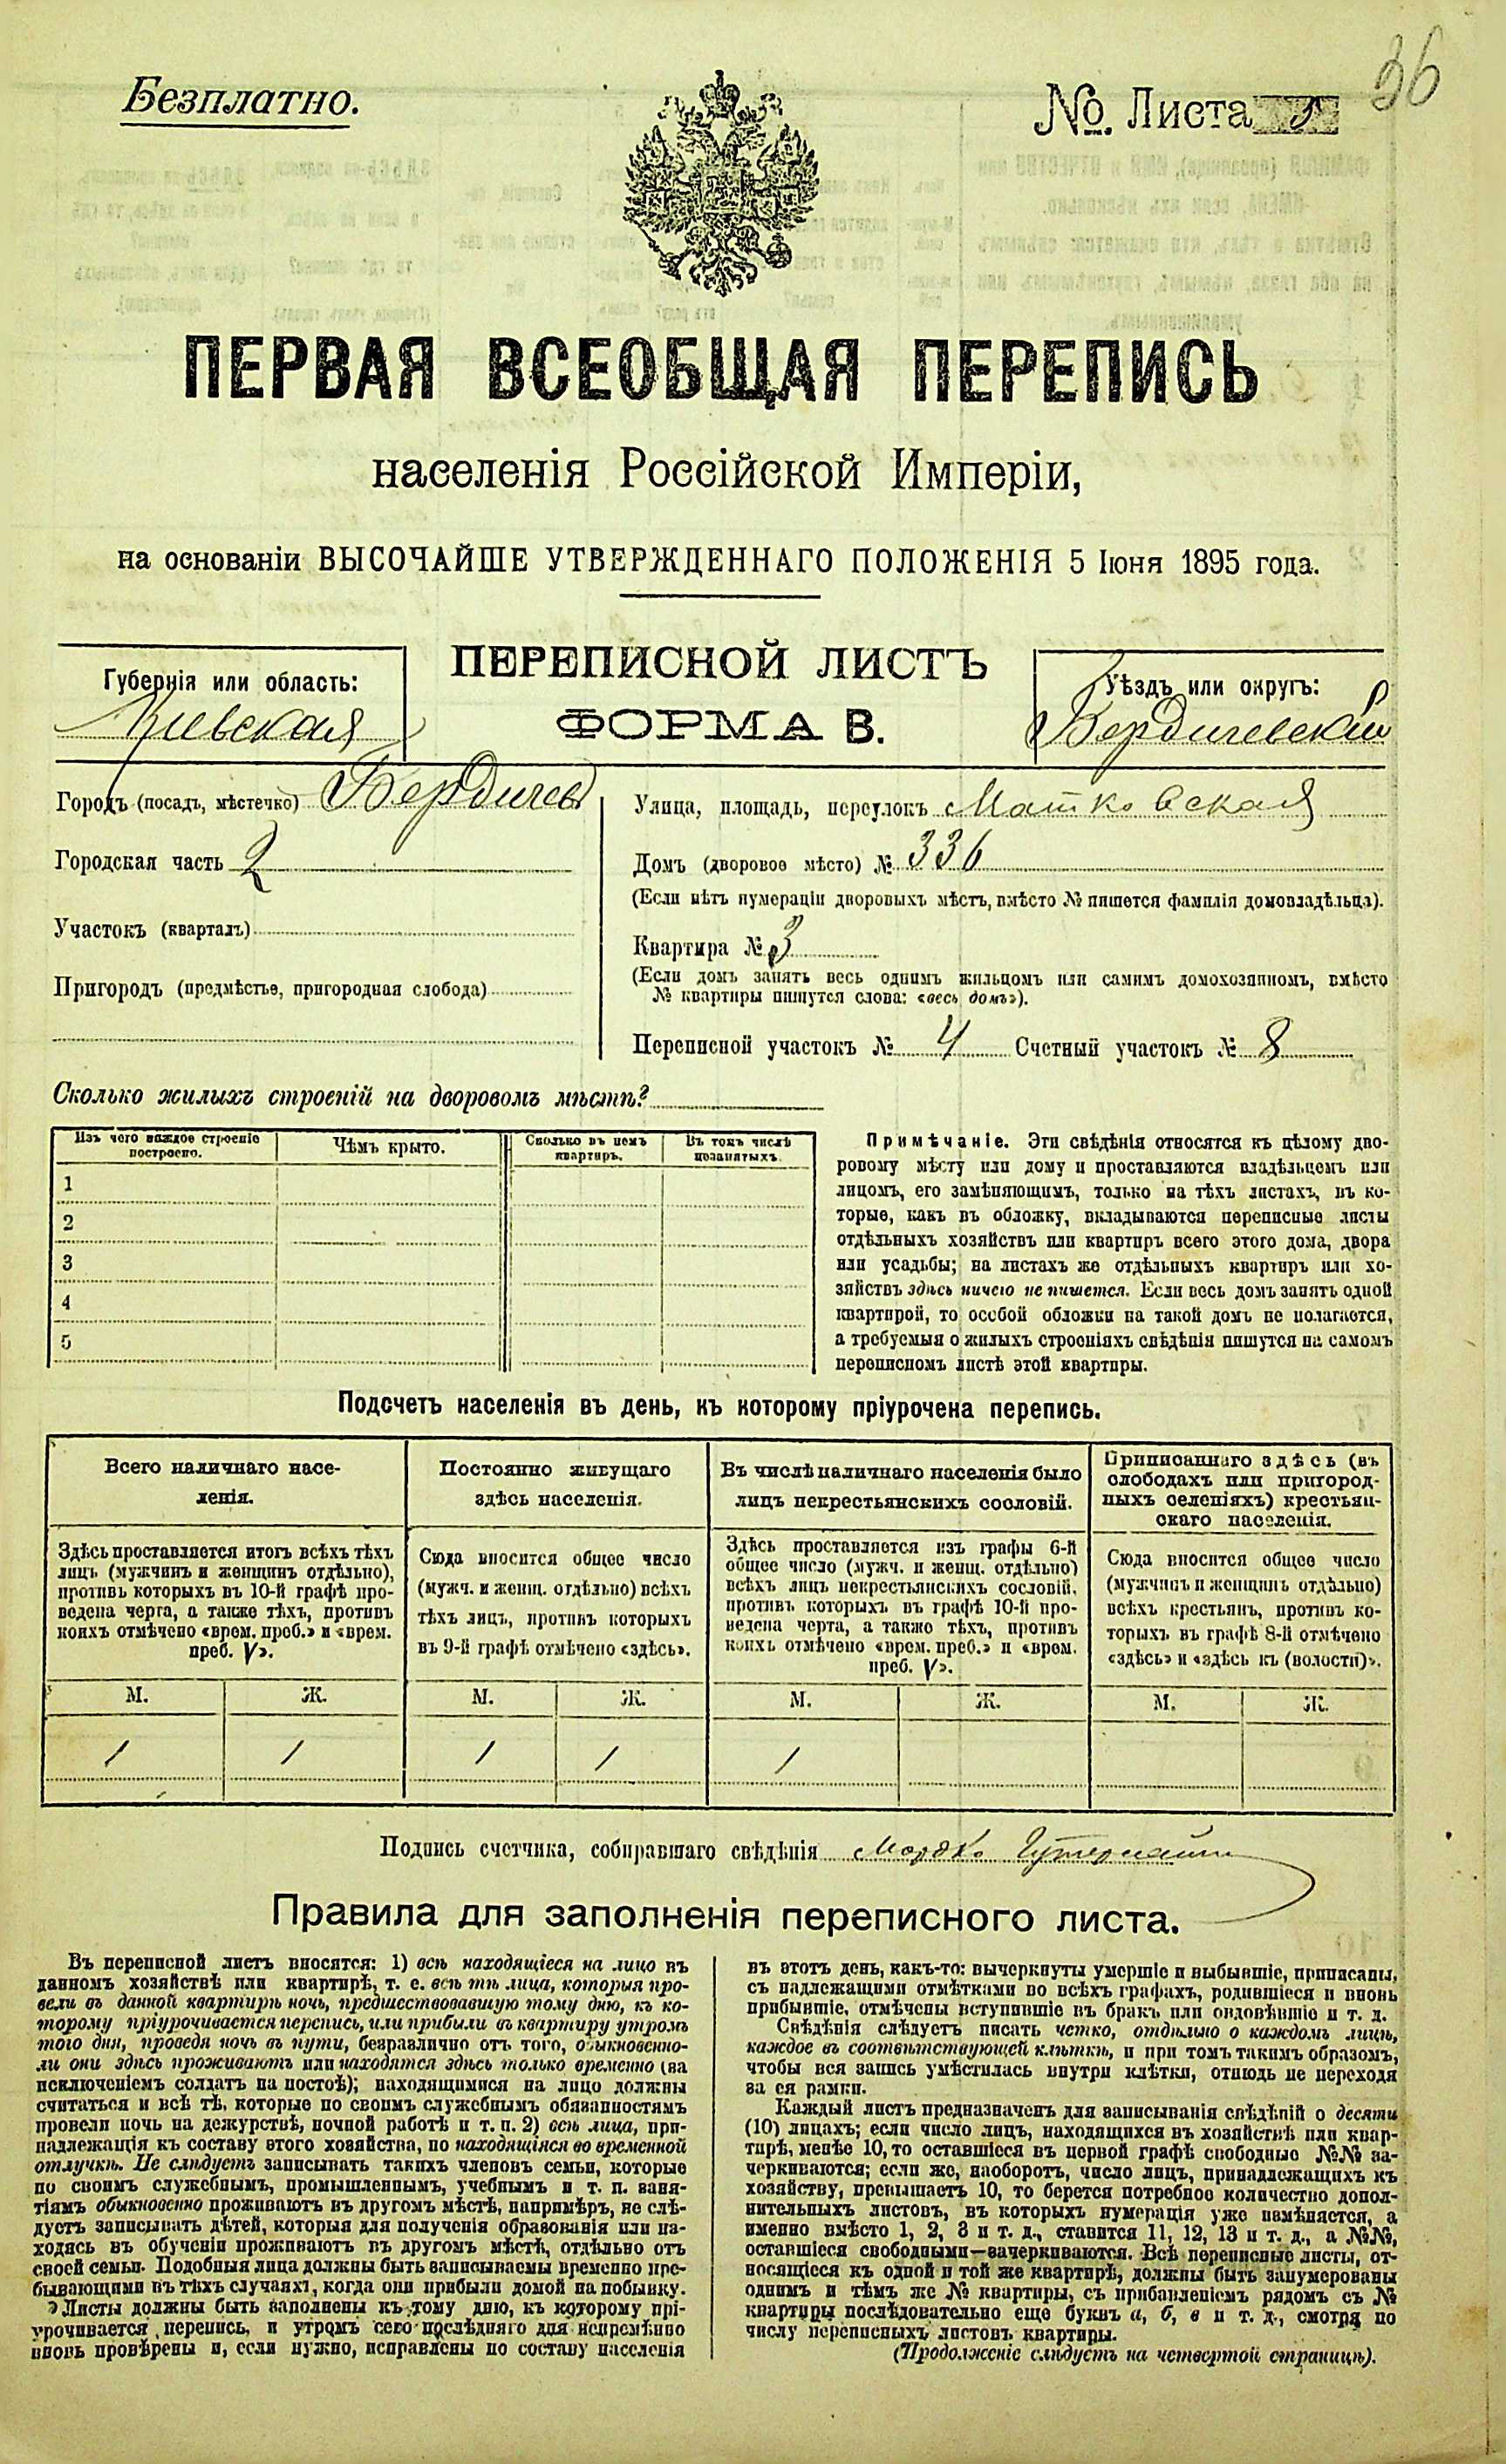 36
Безплатно.
№. Листа 3
ПЕРВАЯ ВСЕОБЩАЯ ПЕРЕПИСЬ
населенія Россійской Имперіи,
на основаніи ВЫСОЧАЙШЕ УТВЕРЖДЕННАГО ПОЛОЖЕНІЯ 5 Іюня 1895 года.
ПЕРЕПИСНОЙ ЛИСТЪ
ФОРМА В.
Губернія или область:
Киевская
Уѣздъ или округъ:
Бердичевский
Городъ (посадъ, мѣстечко) Бердичев
Городская часть 2
Участокъ (кварталъ)
Пригородъ (предмѣстье, пригородная слобода)
Улица, площадь, переулокъ Матковская
Домъ (дворовое мѣсто) № 336
(Если нѣтъ нумераціи дворовыхъ мѣстъ, вмѣсто № пишется фамилія домовладѣльца).
Квартира № 3
(Если домъ занятъ весь однимъ жильцомъ или самимъ домохозяиномъ, вмѣсто
№ квартиры пишутся слова: «весь домъ»).
Переписной участокъ № 4 Счетный участокъ № 8
Сколько жилыхъ строеній на дворовомъ мѣстѣ?
Изъ чего каждое строеніе
построено.
Чѣмъ крыто.
Сколько въ немъ
квартиръ.
Въ томъ числѣ
незанятыхъ.
1
2
3
4
5
Примѣчаніе. Эти свѣдѣнія относятся къ цѣлому дво-
ровому мѣсту или дому и проставляются владѣльцемъ или
лицомъ, его замѣняющимъ, только на тѣхъ листахъ, въ ко-
торые, какъ въ обложку, вкладываются переписные листы
отдѣльныхъ хозяйствъ или квартиръ всего этого дома, двора
или усадьбы; на листахъ же отдѣльныхъ квартиръ или хо-
зяйствъ здѣсь ничего не пишется. Если весь домъ занятъ одной
квартирой, то особой обложки на такой домъ не полагается,
а требуемыя о жилыхъ строеніяхъ свѣдѣнія пишутся на самомъ
переписномъ листѣ этой квартиры.
Подсчетъ населенія въ день, къ которому пріурочена перепись.
Всего наличнаго насе-
ленія.
Здѣсь проставляется итогъ всѣхъ тѣхъ
лицъ (мужчинъ и женщинъ отдѣльно),
противъ которыхъ въ 10-й графѣ про-
ведена черта, а также тѣхъ, противъ
коихъ отмѣчено «врем. преб.» и «врем.
преб. V».
Постоянно живущаго
здѣсь населенія.
Сюда вносится общее число
(мужч. и женщ. отдѣльно) всѣхъ
тѣхъ лицъ, противъ которыхъ
въ 9-й графѣ отмѣчено «здѣсь».
Въ числѣ наличнаго населенія было
лицъ некрестьянскихъ сословій.
Здѣсь проставляется изъ графы 6-й
общее число (мужч. и женщ. отдѣльно)
всѣхъ лицъ некрестьянскихъ сословій,
противъ которыхъ въ графѣ 10-й про-
ведена черта, а также тѣхъ, противъ
коихъ отмѣчено «врем. преб.» и «врем.
преб. V».
Приписаннаго здѣсь (въ
слободахъ или пригород-
ныхъ селеніяхъ) крестьян-
скаго населенія.
Сюда вносится общее число
(мужчинъ и женщинъ отдѣльно)
всѣхъ крестьянъ, противъ ко-
торыхъ въ графѣ 8-й отмѣчено
«здѣсь» и «здѣсь къ (волости)».
М. Ж. М. Ж. М. Ж. М. Ж.
1 1 1 1 1
Подпись счетчика, собиравшаго свѣдѣнія Мордко Гутерман
Правила для заполненія переписного листа.
Въ переписной листъ вносятся: 1) всѣ находящіеся на лицо въ
данномъ хозяйствѣ или квартирѣ, т. е. всѣ тѣ лица, которыя про-
вели въ данной квартирѣ ночь, предшествовавшую тому дню, къ ко-
торому пріурочивается перепись, или прибыли въ квартиру утромъ
того дня, проведя ночь въ пути, безразлично отъ того, обыкновенно-
ли они здѣсь проживаютъ или находятся здѣсь только временно (за
исключеніемъ солдатъ на постоѣ); находящимися на лицо должны
считаться и всѣ тѣ, которые по своимъ служебнымъ обязанностямъ
провели ночь на дежурствѣ, ночной работѣ и т. п. 2) всѣ лица, при-
надлежащія къ составу этого хозяйства, но находящіяся во временной
отлучкѣ. Не слѣдуетъ записывать такихъ членовъ семьи, которые
по своимъ служебнымъ, промышленнымъ, учебнымъ и т. п. заня-
тіямъ обыкновенно проживаютъ въ другомъ мѣстѣ, напримѣръ, не слѣ-
дуетъ записывать дѣтей, которыя для полученія образованія или на-
ходясь въ обученіи проживаютъ въ другомъ мѣстѣ, отдѣльно отъ
своей семьи. Подобныя лица должны быть записываемы временно пре-
бывающими въ тѣхъ случаяхъ, когда они прибыли домой на побывку.
Листы должны быть заполнены къ тому дню, къ которому прі-
урочивается перепись, и утромъ сего послѣдняго дня непремѣнно
вновь провѣрены и, если нужно, исправлены по составу населенія
въ этотъ день, какъ-то: вычеркнуты умершіе и выбывшіе, приписаны,
съ надлежащими отмѣтками во всѣхъ графахъ, родившіеся и вновь
прибывшіе, отмѣчены вступившіе въ бракъ или овдовѣвшіе и т. д.
Свѣдѣнія слѣдуетъ писать четко, отдѣльно о каждомъ лицѣ,
каждое въ соотвѣтствующей клѣткѣ, и при томъ такимъ образомъ,
чтобы вся запись умѣстилась внутри клѣтки, отнюдь не переходя
за ея рамки.
Каждый листъ предназначенъ для записыванія свѣдѣній о десяти
(10) лицахъ; если число лицъ, находящихся въ хозяйствѣ или квар-
тирѣ, менѣе 10, то оставшіеся въ первой графѣ свободные №№ за-
черкиваются; если же, наоборотъ, число лицъ, принадлежащихъ къ
хозяйству, превышаетъ 10, то берется потребное количество допол-
нительныхъ листовъ, въ которыхъ нумерація уже измѣняется, а
именно вмѣсто 1, 2, 3 и т. д., ставится 11, 12, 13 и т. д., а №№,
оставшіеся свободными—зачеркиваются. Всѣ переписные листы, от-
носящіеся къ одной и той же квартирѣ, должны быть занумерованы
однимъ и тѣмъ же № квартиры, съ прибавленіемъ рядомъ съ №
квартиры послѣдовательно еще буквъ а, б, в и т. д., смотря по
числу переписныхъ листовъ квартиры.
(Продолженіе слѣдуетъ на четвертой страницѣ).